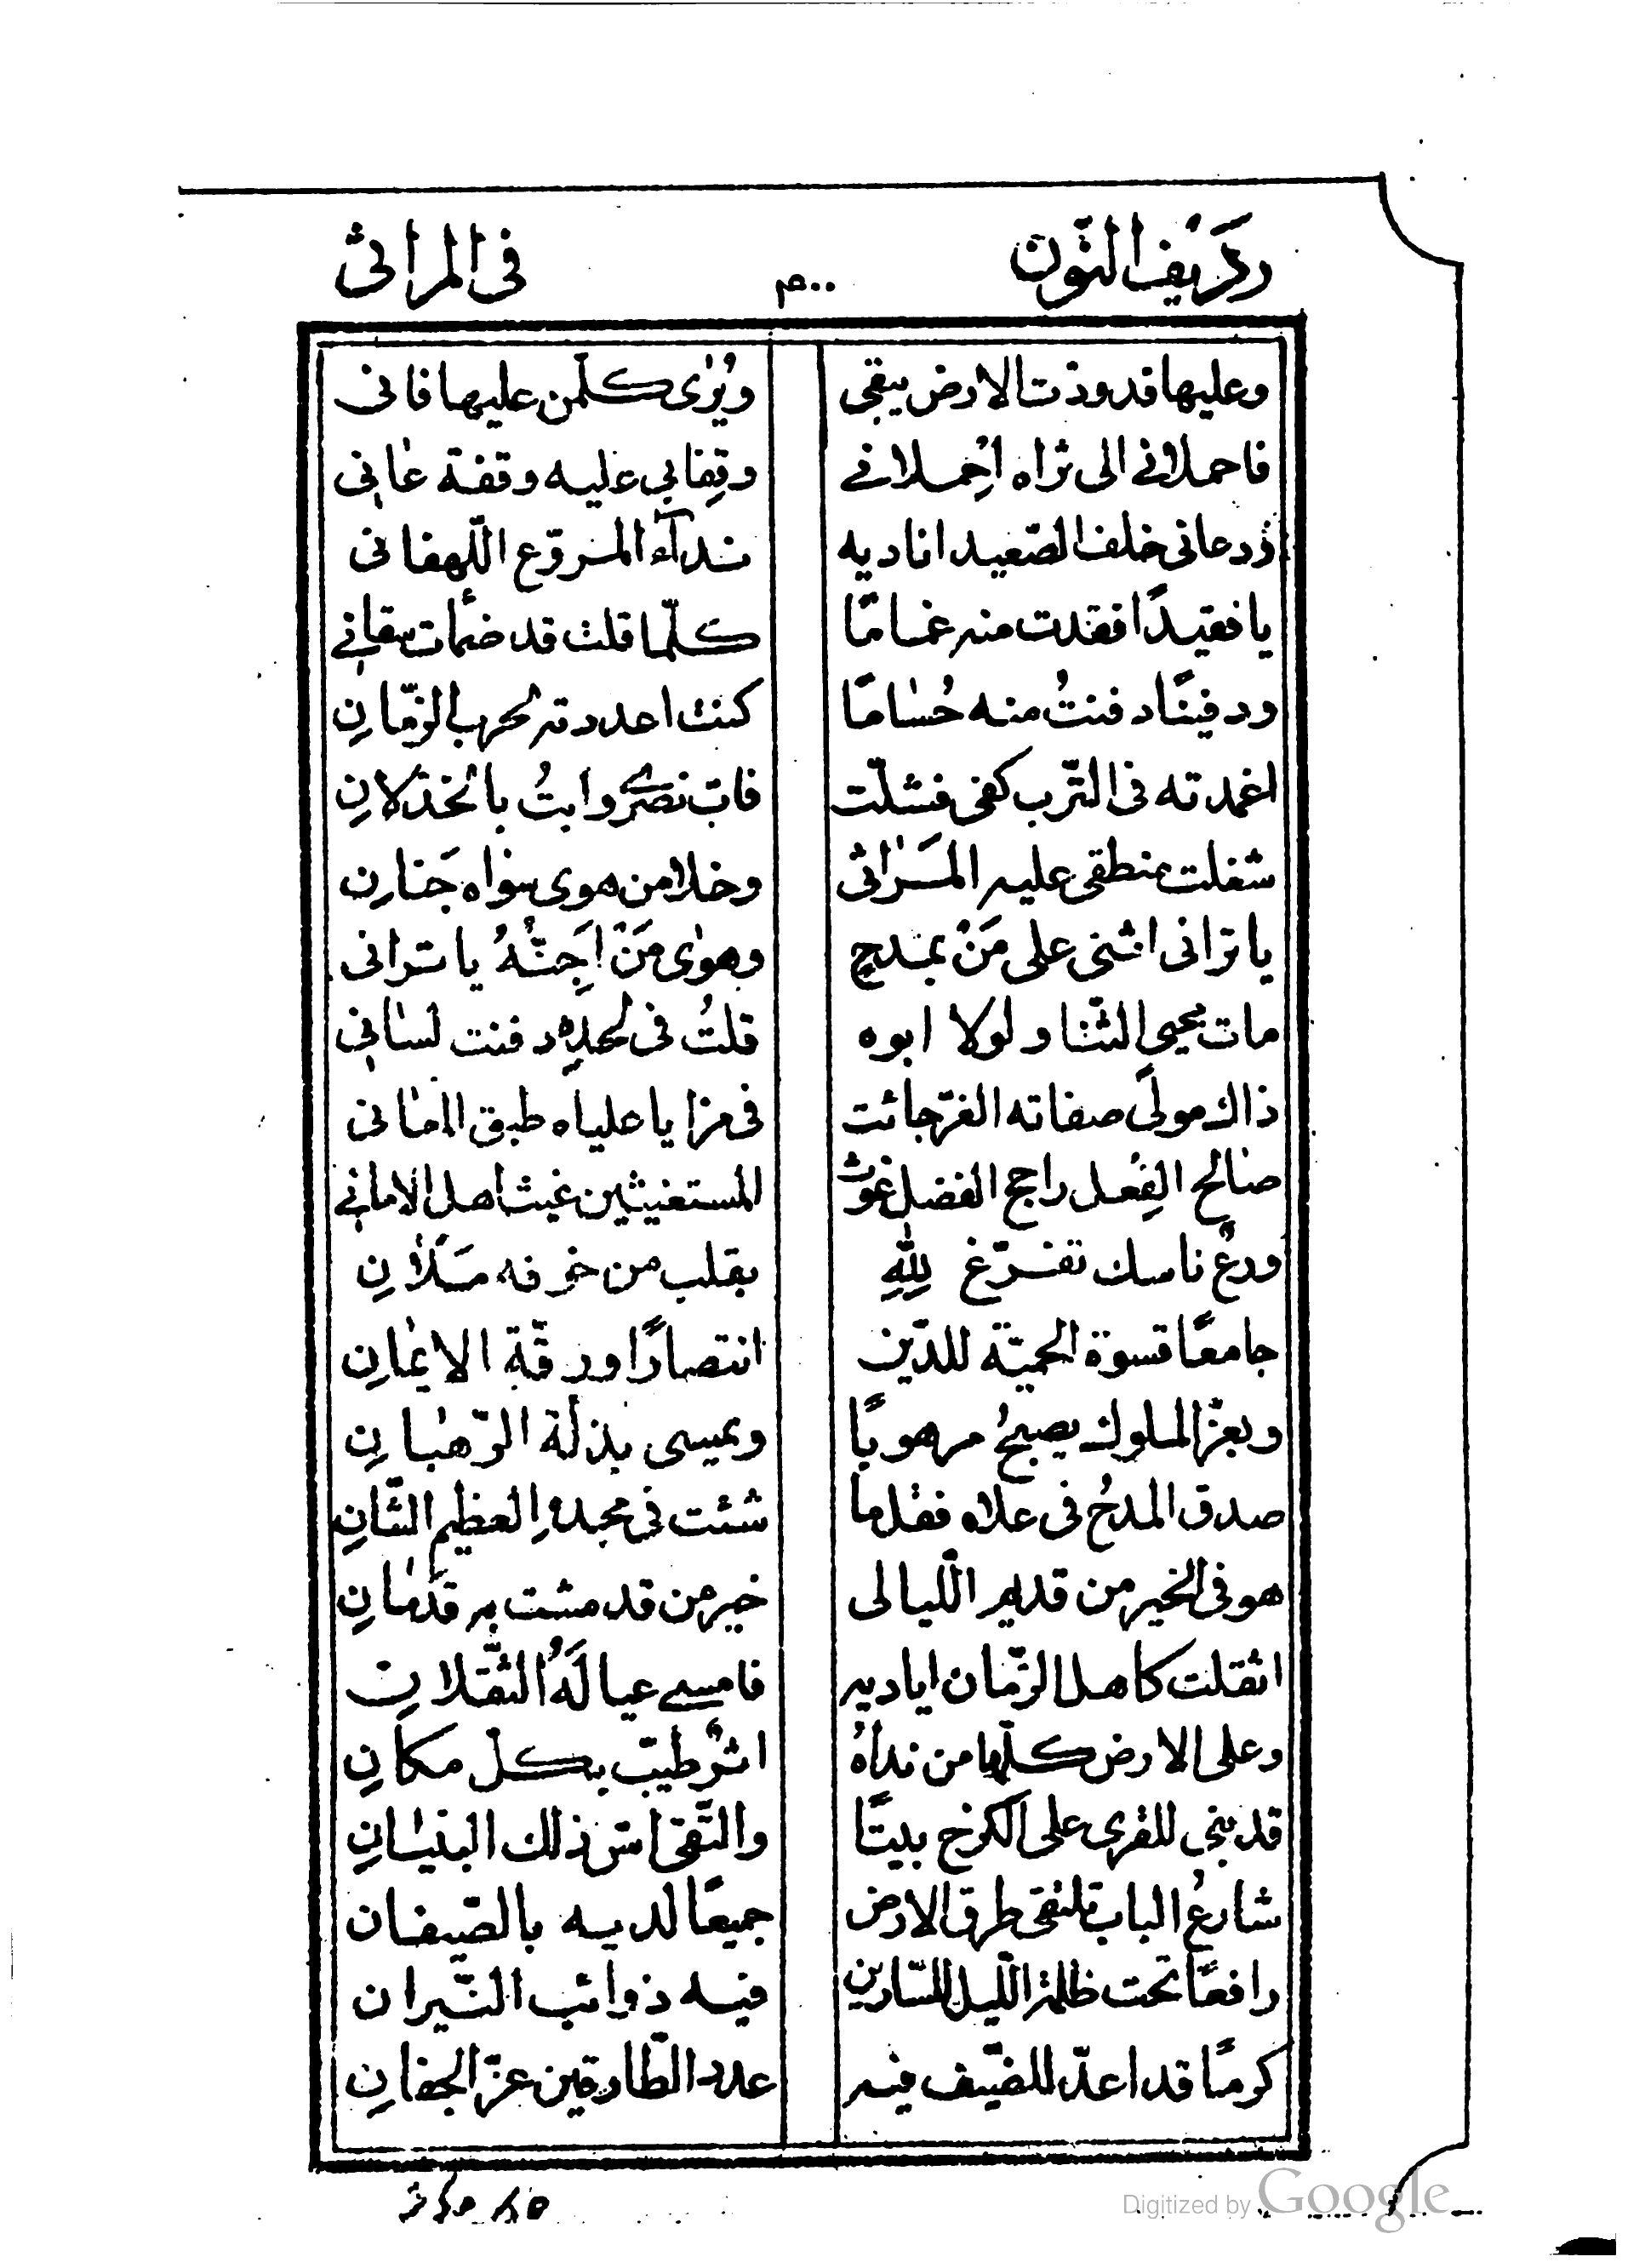 رديف النّون ٣٠٠ فى المراثى
وعليها قد ودّت الارض يبقى ويُرٰى كلّمن عليها فانى
فاحملانے الى ثراه اُحملانے وقِفابى عليه وقفة عانى
ودعانى خلف الصّعيد اناديه نداۤء المروّع اللّهفانى
يا فقيدًا فقدت منه غمامًا كلّما قلت قد ضمأت سقانے
ودفينًا دفنتُ منه حُسامًا كنت اعددته لحرب الزّمانِ
اغمدته فى التّرب كفى فشلّت فات نصرے وابتُ بالخذلانِ
شغلت منطقى عليه المَراثى وخلا من هوى سواه جَنانِ
يا ترانى اثنى على مَنْ بمدحٍ وهوٰى مَنْ اُجِنّهُ يا ترانى
مات يحيى الثنا ولولا ابوه قلتُ فى لحدِه دفنت لسانى
ذاك مولًى صفاته الغرّ جائت فى مزايا علياه طبق المعانى
صالح الفِعل راجح الفضل غوث المستغيثين غيث اهل الامانے
ورعٌ ناسك تفرّغ للهِ بقلب من خوفه مَلاٰنِ
جامعًا قسوة الحميّة للدّين انتصارًا ورقّة الايمانِ
وبعزّ الملوك يصبحُ مرهوبًا ويمسى بذلّة الرّهبانِ
صدق المدحُ فى علاه فقل ما شئت فى مجدهِ العظيم الشّانِ
هو فى الخير من قديم اللّيالى خير من قد مشت به قدمانِ
اثقلت كاهل الزّمان اياديه فامسے عيالَهُ الثّقلانِ
وعلى الارض كلّها من نداهُ اثرٌ طيّب بكلّ مكانِ
قد بنى للقرى على الكرخ بيتًا والتّقى اسّ ذلك البنيانِ
شارعُ الباب تلتقى طرق الارض جميعًا لديه بالضّيفان
رافعًا تحت ظلمة اللّيل للسّارين فيه ذوائب النّيران
كرمًا قد اعدّ للضّيف فيه عدد الطّارقين عزّ الجفانِ
Digitized by Google